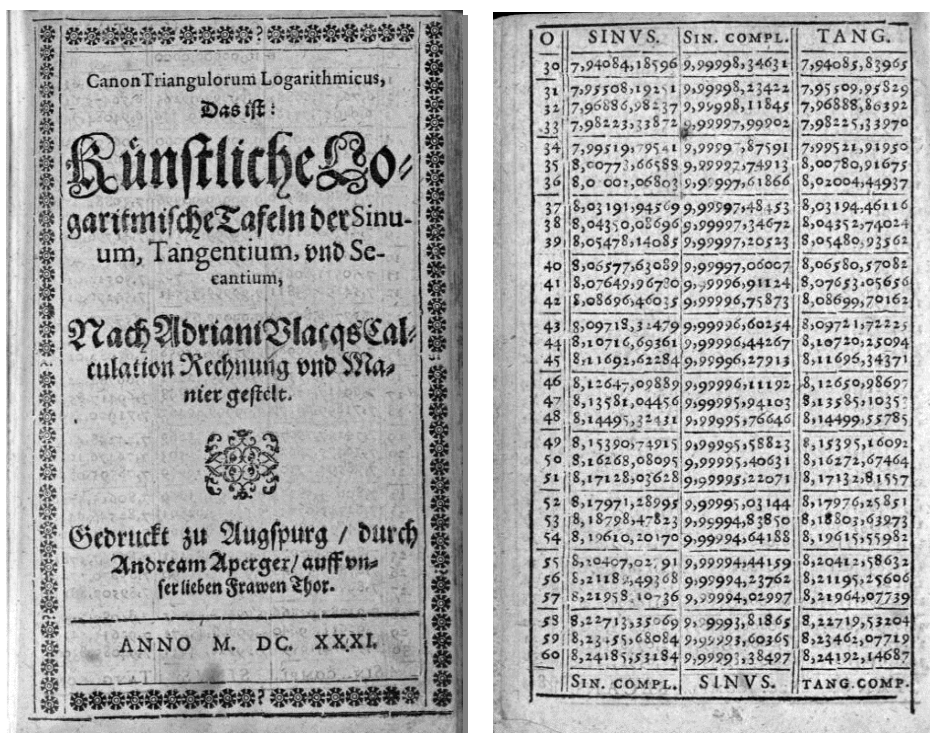 Canon Triangulorum Logarithmicus,
Das ist:
Künstliche Lo-
garitmische Tafeln der Sinu-
um, Tangentium, vnd Se-
cantium,
Nach Adriani Vlacqs Cal-
culation Rechnung vnd Ma-
nier gestelt.
Gedruckt zu Augspurg / durch
Andream Aperger / auff vn-
ser lieben Frawen Thor.
ANNO M. DC. XXXI.
O SINVS. SIN. COMPL. TANG.
30 7,94084,18596 9,99998,34631 7,94085,83965
31 7,95508,19251 9,99998,23422 7,95509,95829
32 7,96886,98237 9,99998,11845 7,96888,86392
33 7,98223,33872 9,99997,99902 7,98225,33970
34 7,99519,79541 9,99997,87591 7,99521,91950
35 8,00773,66588 9,99997,74913 8,00780,91675
36 9,99997,61866 8,02004,44937
37 8,03191,94569 9,99997,48453 8,03194,46116
38 8,04350,08696 9,99997,34672 8,04352,74024
39 8,05478,14085 9,99997,20523 8,05480,93562
40 8,06577,63089 9,99997,06007 8,06580,57082
41 8,07649,96780 9,99996,91124 8,07653,05656
42 8,08696,46035 9,99996,75873 8,08699,70162
43 8,09718,32479 9,99996,60254 8,09721,72225
44 8,10716,69361 9,99996,44267 8,10720,25094
45 8,11692,62284 9,99996,27913 8,11696,34371
46 8,12647,09889 9,99996,11192 8,12650,98697
47 8,13581,04456 9,99995,94103
48 8,14495,32431 9,99995,76646 8,14499,55785
49 8,15390,74915 9,99995,58823 8,15395,16092
50 8,16268,08095 9,99995,40631 8,16272,67464
51 8,17128,03628 9,99995,22071 8,17132,81557
52 8,17971,28995 9,99995,03144 8,17976,25851
53 8,18798,47823 9,99994,83850 8,18803,63973
54 8,19610,20170 9,99994,64188 8,19615,55982
55 9,99994,44159 8,20412,58632
56 8,21189,49368 9,99994,23762 8,21195,25606
57 8,21958,10736 9,99994,02997 8,21964,07739
58 8,22713,35069 9,99993,81865 8,22719,53204
59 8,23455,68084 9,99993,60365 8,23462,07719
60 8,24185,53184 9,99993,38497 8,24192,14687
SIN. COMPL. SINVS. TANG.COMP.